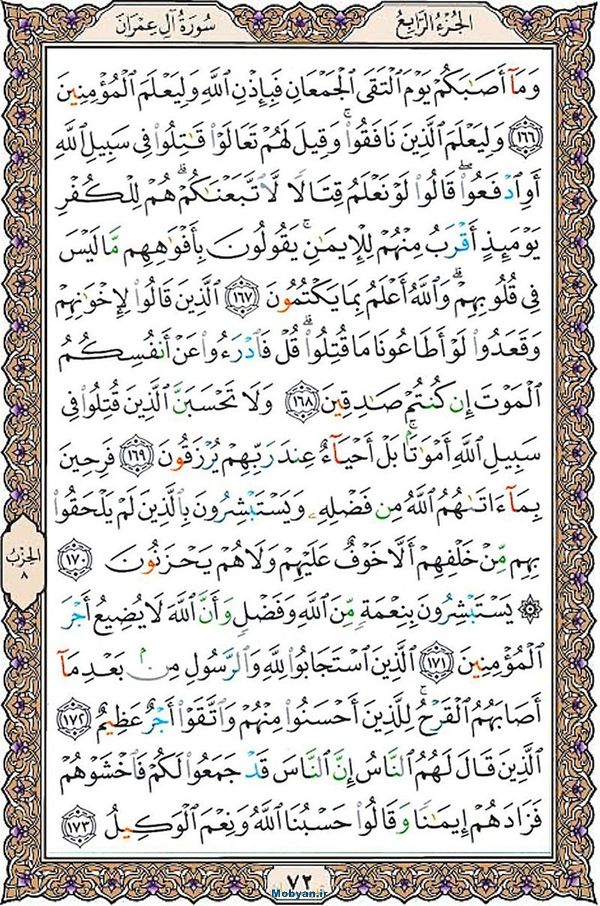 الجُزءُ الرّابِع
سُورَةُ آلِ عِمرَان
وَمَآ أَصَٰبَكُمْ يَوْمَ ٱلْتَقَى ٱلْجَمْعَانِ فَبِإِذْنِ ٱللَّهِ وَلِيَعْلَمَ ٱلْمُؤْمِنِينَ
١٦٦ وَلِيَعْلَمَ ٱلَّذِينَ نَافَقُوا۟ ۚ وَقِيلَ لَهُمْ تَعَالَوْا۟ قَٰتِلُوا۟ فِى سَبِيلِ ٱللَّهِ
أَوِ ٱدْفَعُوا۟ ۖ قَالُوا۟ لَوْ نَعْلَمُ قِتَالًا لَّٱتَّبَعْنَٰكُمْ ۗ هُمْ لِلْكُفْرِ
يَوْمَئِذٍ أَقْرَبُ مِنْهُمْ لِلْإِيمَٰنِ ۚ يَقُولُونَ بِأَفْوَٰهِهِم مَّا لَيْسَ
فِى قُلُوبِهِمْ ۗ وَٱللَّهُ أَعْلَمُ بِمَا يَكْتُمُونَ ١٦٧ ٱلَّذِينَ قَالُوا۟ لِإِخْوَٰنِهِمْ
وَقَعَدُوا۟ لَوْ أَطَاعُونَا مَا قُتِلُوا۟ ۗ قُلْ فَٱدْرَءُوا۟ عَنْ أَنفُسِكُمُ
ٱلْمَوْتَ إِن كُنتُمْ صَٰدِقِينَ ١٦٨ وَلَا تَحْسَبَنَّ ٱلَّذِينَ قُتِلُوا۟ فِى
سَبِيلِ ٱللَّهِ أَمْوَٰتًۢا ۚ بَلْ أَحْيَآءٌ عِندَ رَبِّهِمْ يُرْزَقُونَ ١٦٩ فَرِحِينَ
بِمَآ ءَاتَىٰهُمُ ٱللَّهُ مِن فَضْلِهِۦ وَيَسْتَبْشِرُونَ بِٱلَّذِينَ لَمْ يَلْحَقُوا۟
بِهِم مِّنْ خَلْفِهِمْ أَلَّا خَوْفٌ عَلَيْهِمْ وَلَا هُمْ يَحْزَنُونَ ١٧٠
۞ يَسْتَبْشِرُونَ بِنِعْمَةٍ مِّنَ ٱللَّهِ وَفَضْلٍ وَأَنَّ ٱللَّهَ لَا يُضِيعُ أَجْرَ
ٱلْمُؤْمِنِينَ ١٧١ ٱلَّذِينَ ٱسْتَجَابُوا۟ لِلَّهِ وَٱلرَّسُولِ مِنۢ بَعْدِ مَآ
أَصَابَهُمُ ٱلْقَرْحُ ۚ لِلَّذِينَ أَحْسَنُوا۟ مِنْهُمْ وَٱتَّقَوْا۟ أَجْرٌ عَظِيمٌ ١٧٢
ٱلَّذِينَ قَالَ لَهُمُ ٱلنَّاسُ إِنَّ ٱلنَّاسَ قَدْ جَمَعُوا۟ لَكُمْ فَٱخْشَوْهُمْ
فَزَادَهُمْ إِيمَٰنًا وَقَالُوا۟ حَسْبُنَا ٱللَّهُ وَنِعْمَ ٱلْوَكِيلُ ١٧٣
الحِزبُ
٨
٧٢
Mobyan.ir